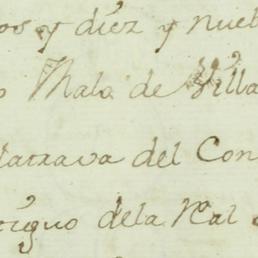 os y diez y nueb
o Malo de Villa
latrava del Con
tiguo dela Rl